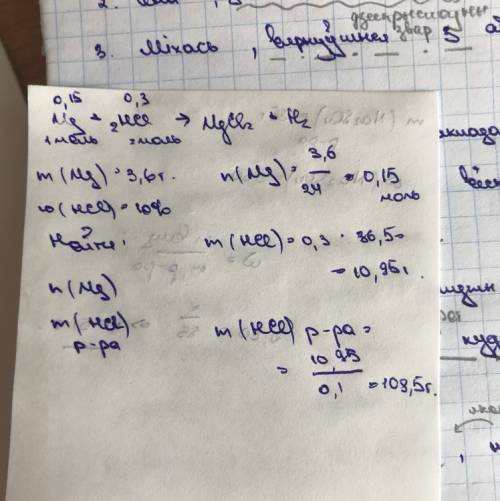 3. Міхась , вярнуўшыся з
0,15 0,3
Mg + 2HCl → MgCl₂ + H₂
1 моль 2 моль
m (Mg) = 3,6 г. n (Mg) = 3,6 / 24 = 0,15 моль
w (HCl) = 10%
Найти: m (HCl) = 0,3 · 36,5 =
= 10,95 г.
n (Mg)
m (HCl) р-ра m (HCl) р-ра =
= 10,95 / 0,1 = 109,5 г.